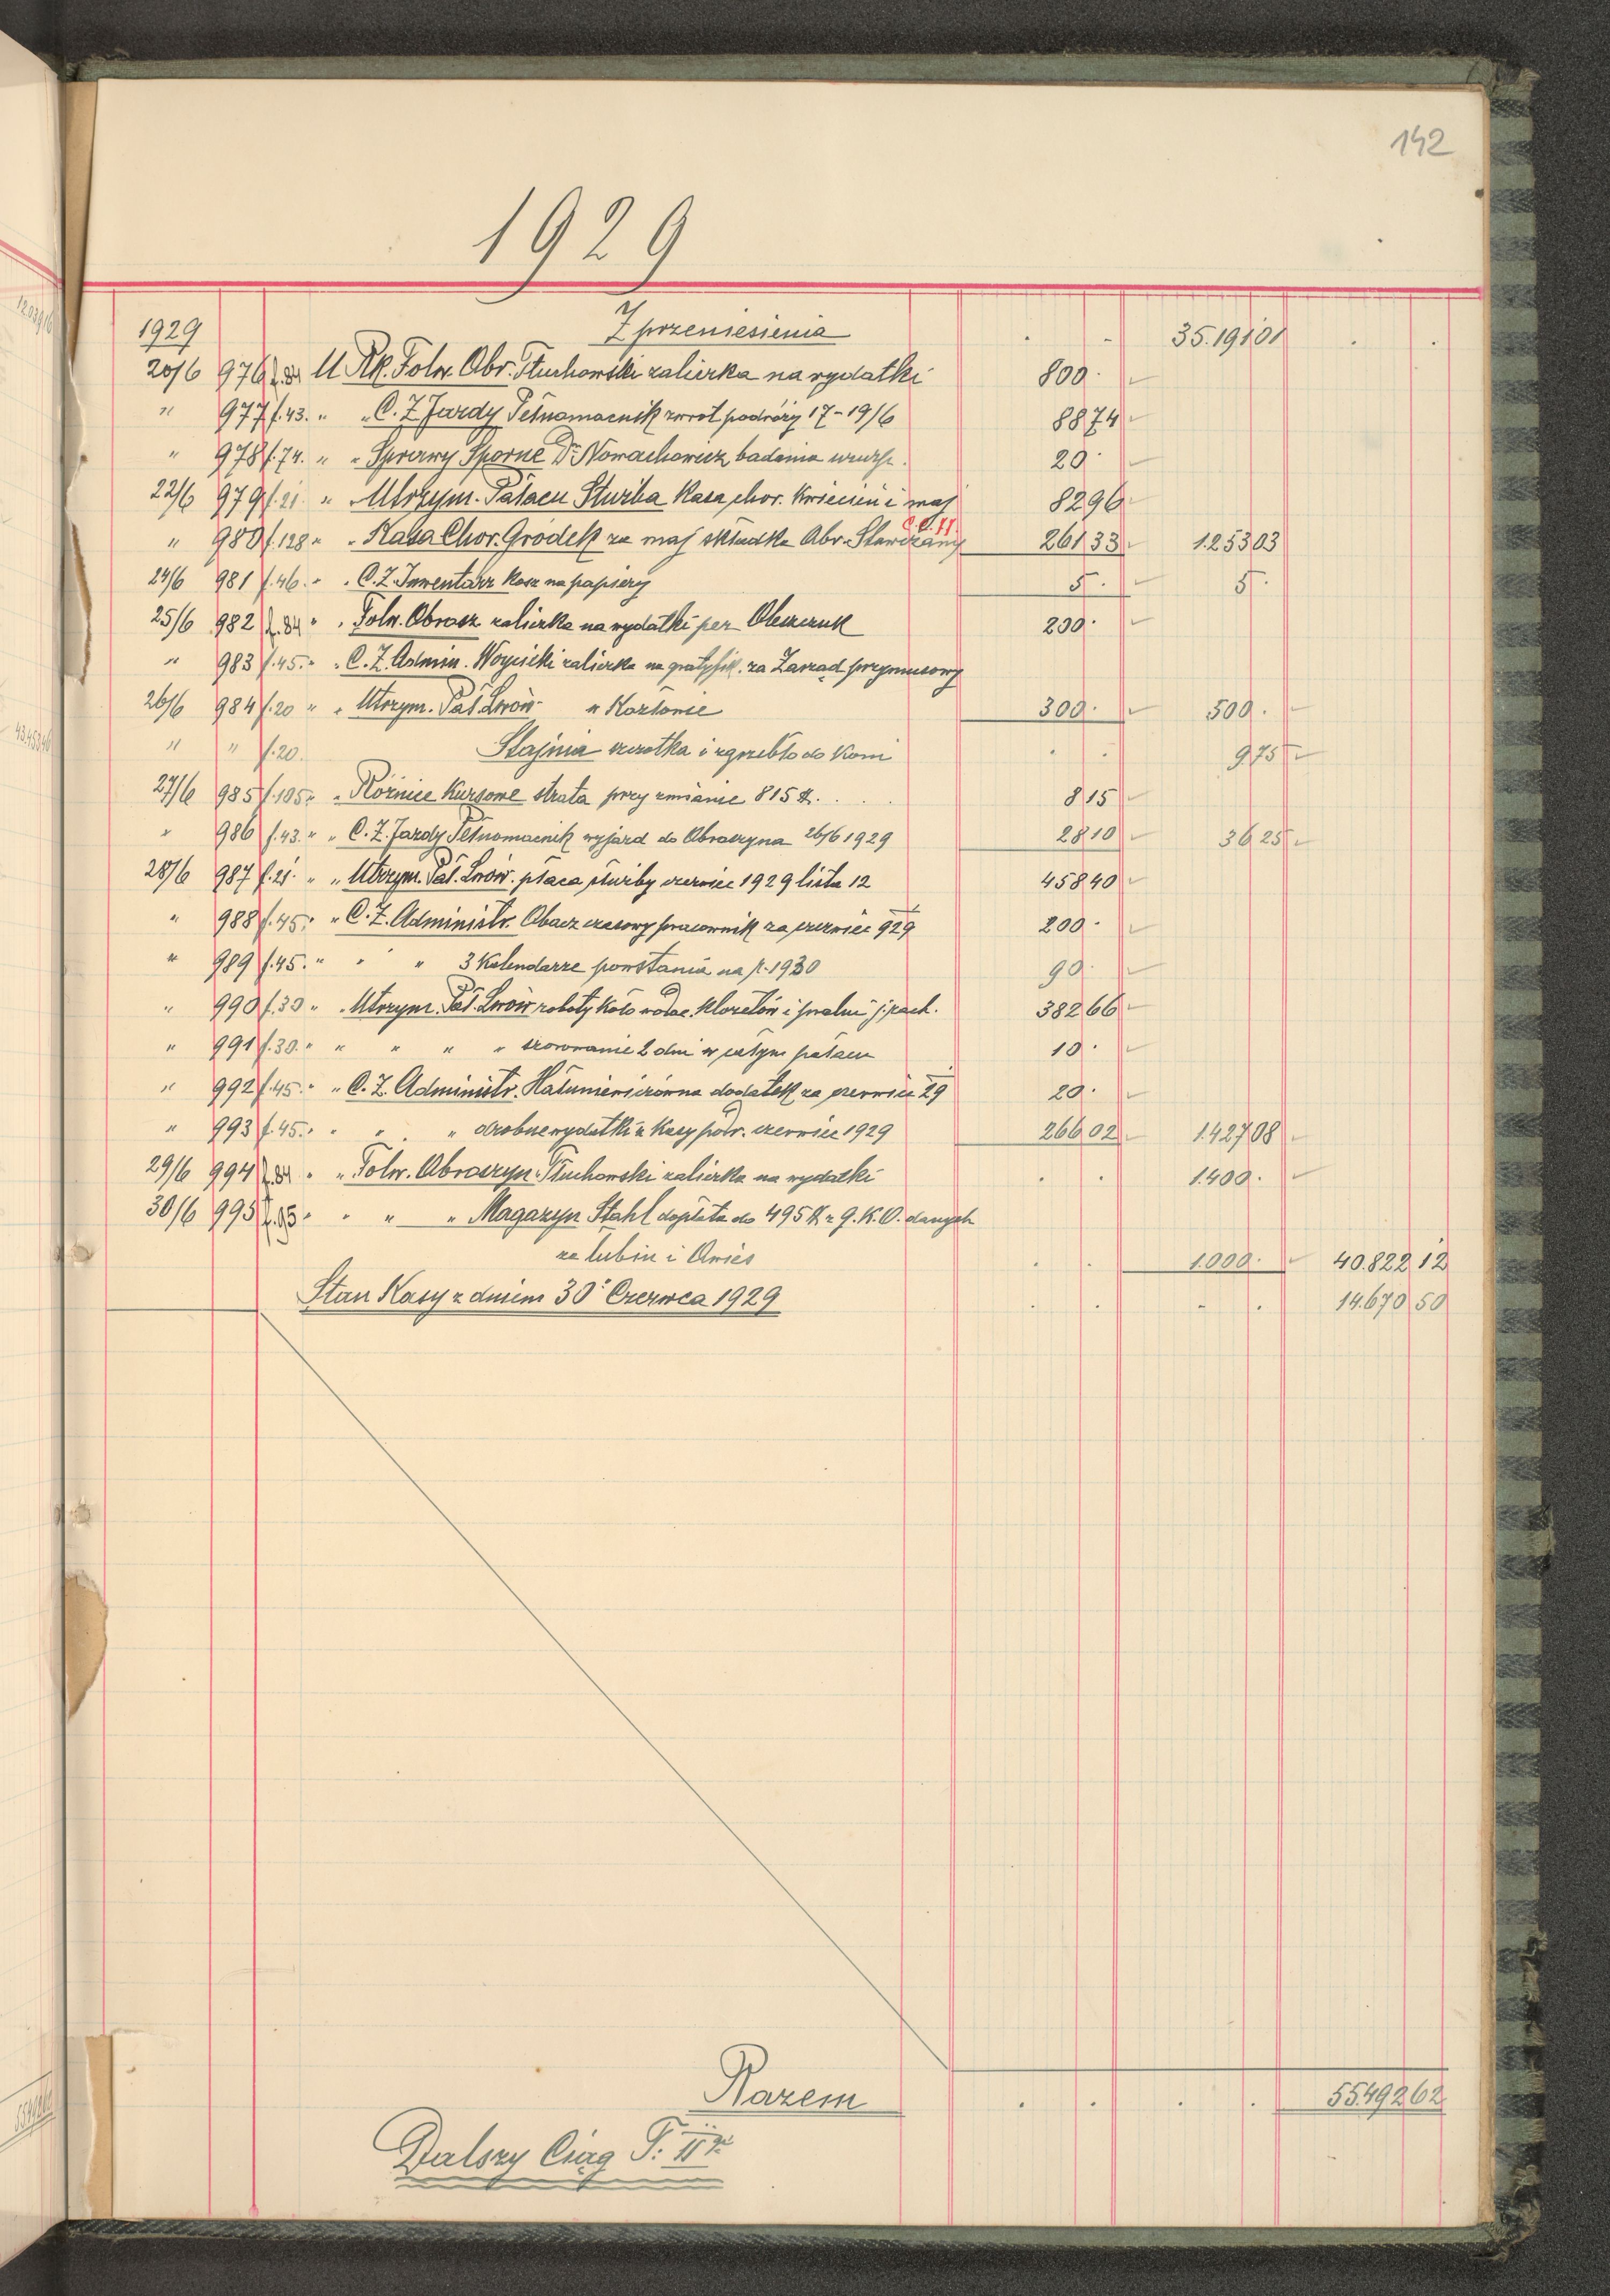 142
1929
1929 Z przeniesienia 35.191 01
20/6 976 f.84 U Rk. Folw. Obr. Tłuchowski zaliczka na wydatki 800 ·
" 977 f.43. " " C. Z. Jazdy Pełnomocnik zwrot podróży 17-19/6 88 74
" 978 f.74. " " Sprawy Sporne Dr Nowachowicz badania 20 ·
22/6 979 f.21. " " Utrzym. Pałacu Służba Kasa chor. Kwiecień i maj 82 96
C.C.
" 980 f.128 " " Kasa Chor. Gródek za maj składka Obr.-Stawczany 261 33 1.253 03
24/6 981 f.46. " " C. Z. Inwentarz Kosz na papiery 5 · 5 ·
25/6 982 f.84 " " Folw. Obrosz. zaliczka na wydatki per 200 ·
" 983 f.45. " " C. Z. Admin. Woycicki zaliczka na gratyfik. za Zarząd przymusowy
26/6 984 f.20 " " Utrzym. Pał. Lwów " Kozłowie 300 · 500 ·
" " f.20. Stajnia szczotka i zgrzebło do koni 9 75
27/6 985 f.105. " " Różnice Kursowe strata przy zmianie 815 $ . . . . 8 15
" 986 f.43. " " C. Z. Jazdy Pełnomocnik wyjazd do Obroszyna 26/6 1929 28 10 36 25
28/6 987 f.21. " " Utrzym. Pał. Lwów. płaca służby czerwiec 1929 lista 12 458 40
" 988 f.45. " " C. Z. Administr. Obacz czasowy pracownik za czerwiec 929 200 ·
" 989 f.45. " " " 3 Kalendarze powstania na r. 1930 90 ·
" 990 f.30 " " Utrzym. Pał. Lwów roboty koło wodoc. klozetów i pralni j. rach. 382 66
" 991 f.30. " " " " " szorowanie 2 dni w całym pałacu 10 ·
" 992 f.45. " " C. Z. Administr. Hałuniewiczówna dodatek za czerwiec 29 20 ·
" 993 f.45. " " " " drobne wydatki z Kasy podr. czerwiec 1929 266 02 1.427 08
29/6 994 f.84 " " Folw. Obroszyn. Tłuchowski zaliczka na wydatki 1.400 ·
30/6 995 f.95 " " " " Magazyn Stahl dopłata do 495 $ z G.K.O. danych
za lubin i Owies 1.000 · 40.822 12
Stan Kasy z dniem 30º Czerwca 1929 14.670 50
Razem 55.492 62
Dalszy Ciąg T. II